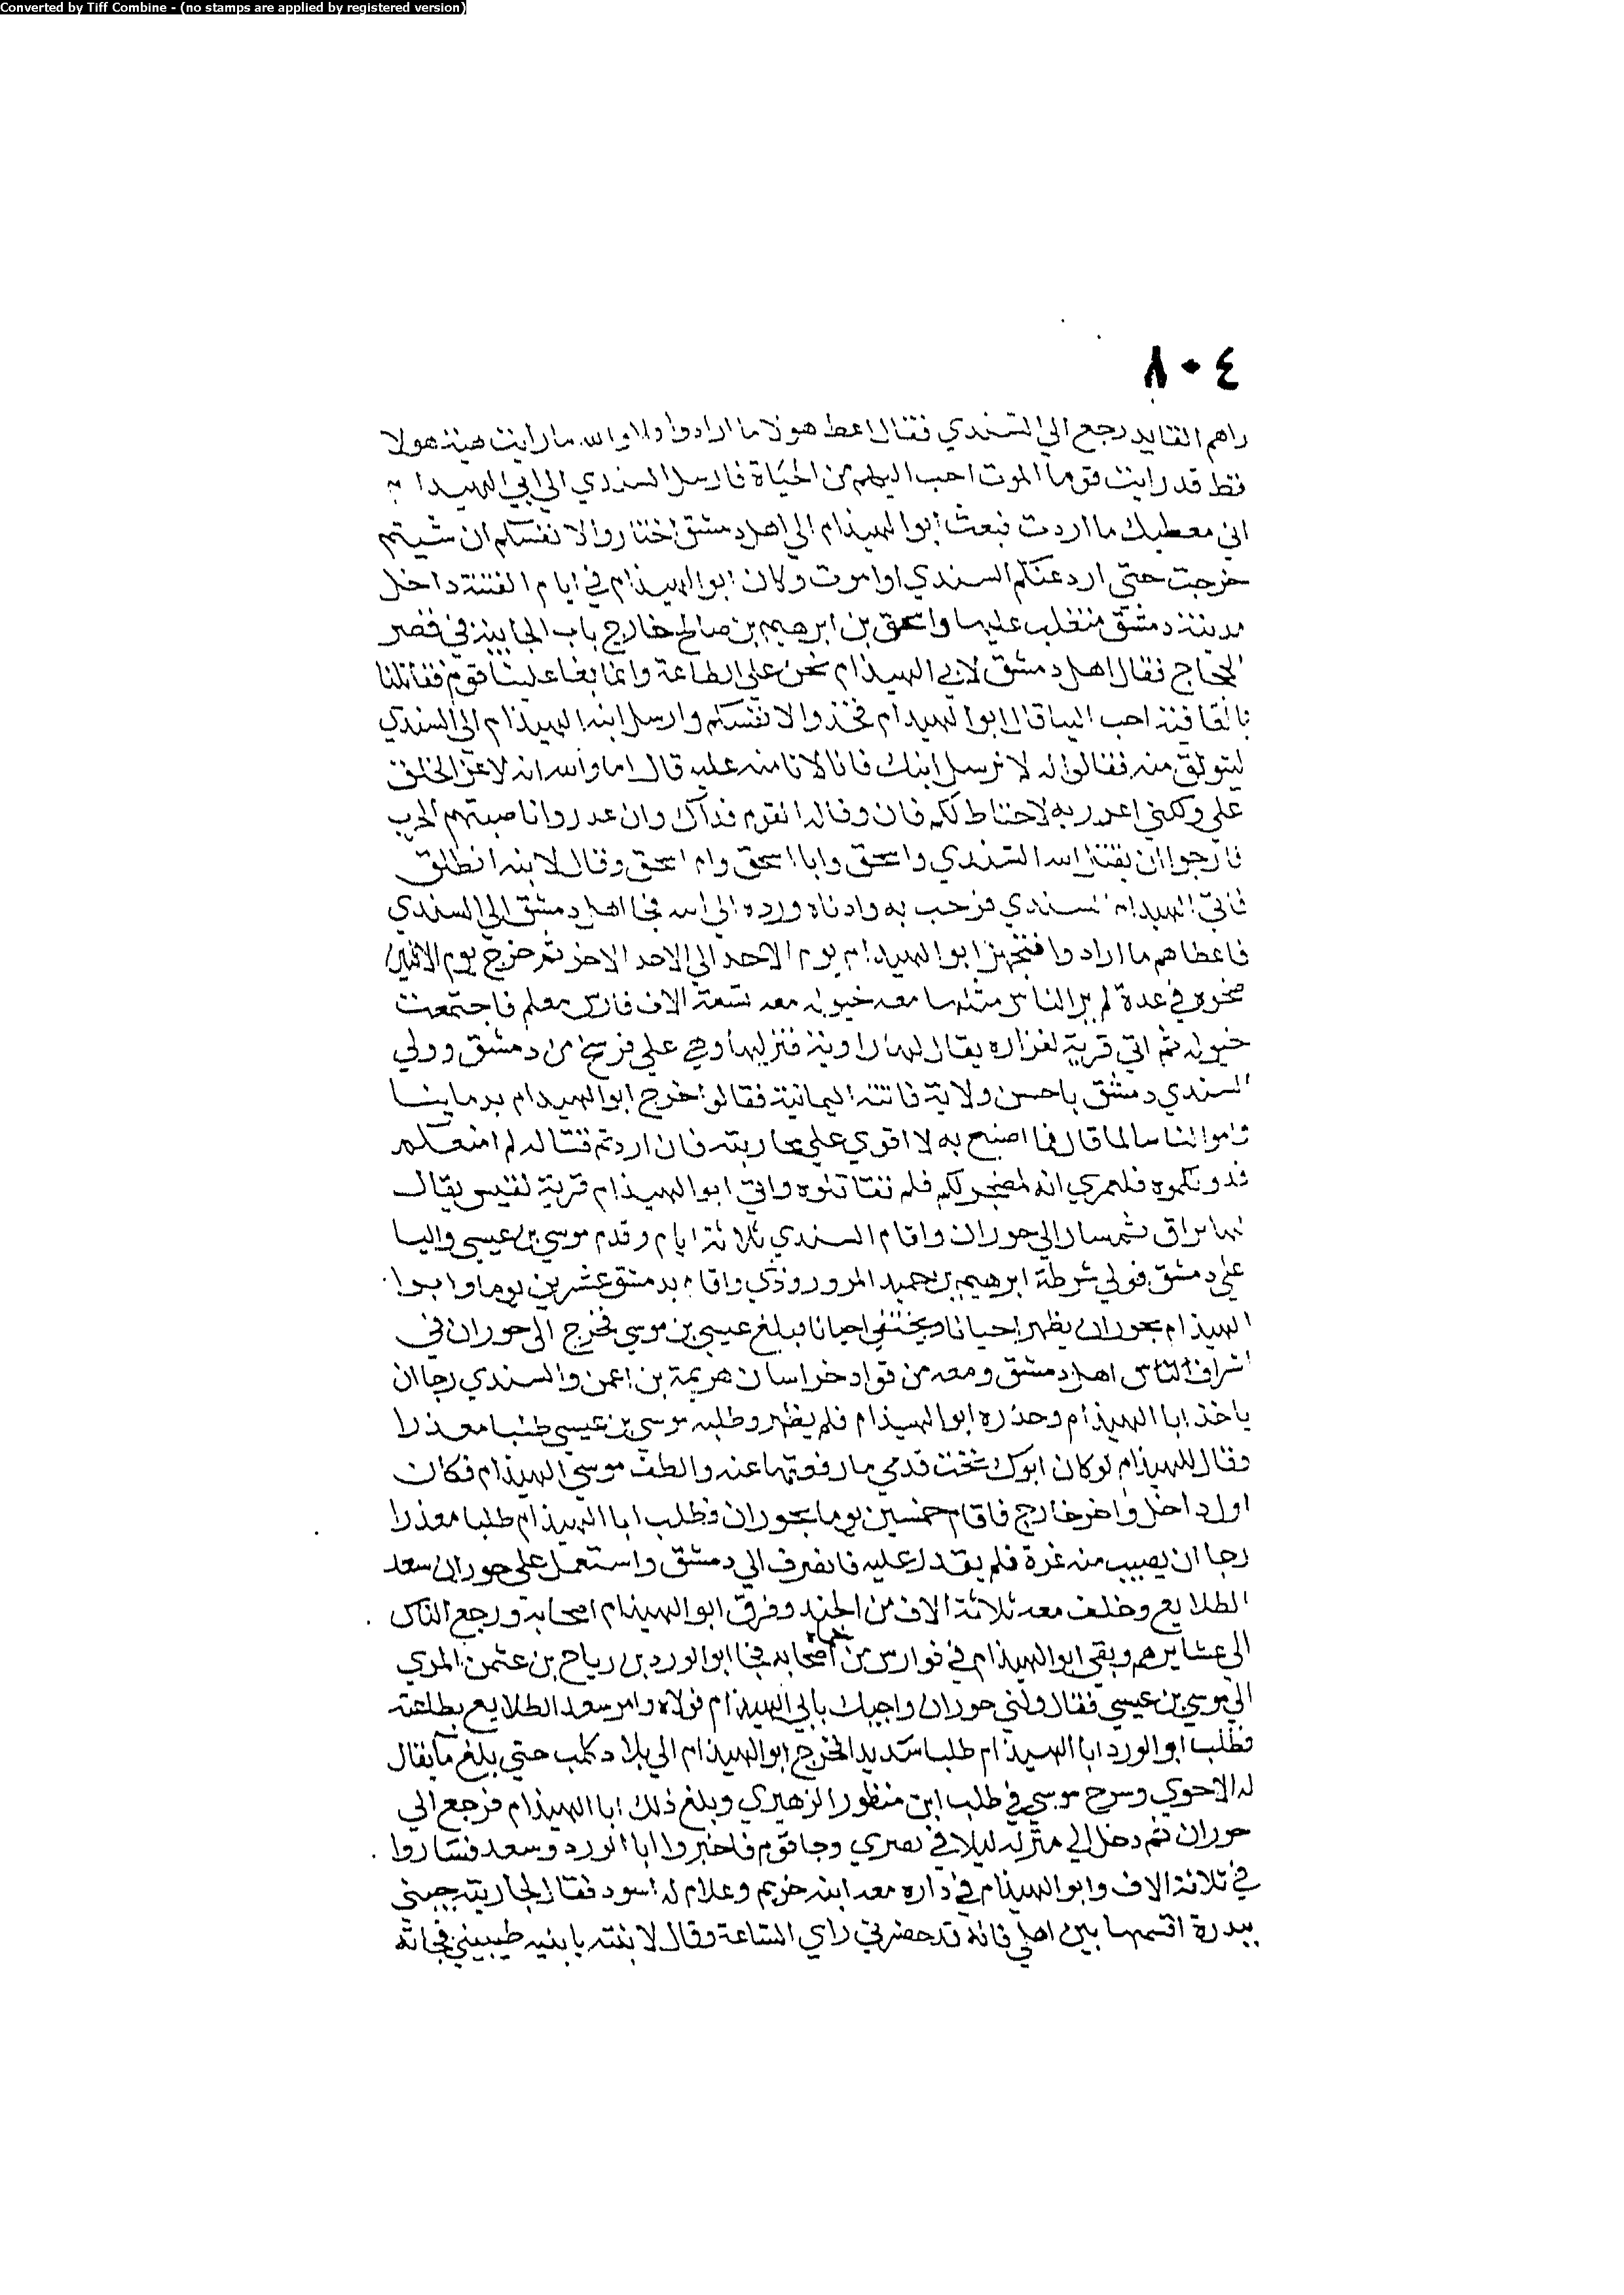 Converted by Tiff Combine - (no stamps are applied by registered version)
٨٠٤
راهم القايد رجع الي السندي فقال اعط هولا ما ارادوا والله ما رايت هيئة هولا
قط قد رايت قوما الموت احب اليهم من الحياة فارسل السندي الي ابي الهيدام
اني معطيك ما اردت فبعث ابو الهيذام الي اهل دمشق اختاروا لانفسكم ان شيتم
خرجت حتي اردعنكم السندي او اموت وكان ابو الهيذام في ايام الفتنة داخل
مدينة دمشق متغلب عليها واسحق بن ابرهيم بن صالح خارج باب الجابية في قصر
الحجاج فقال اهل دمشق لابي الهيذام نحن علي الطاعة وانما بغا علينا قوم فقاتلنا
احب الينا قال ابو الهيدام فخذوا لانفسكم وارسل ابنه الهيذام الي السندي
ليتوثق منه فقالوا له لا ترسل ابنك فانا لا نامنه عليه قال اما والله انه لاعز الخلق
علي ولكني اعذر به لاحتاط لكم فان وفا لدا نقوم فداك وان عدروا ناصبتهم الحرب
فارجوا ان يقتل الله السندي واسحق وابا اسحق وام اسحق وقال لابنه انطلق
فاتي الهيدام السندي فرحب به وادناه ورده الي ابيه فجا اهل دمشق الي السندي
فاعطاهم ما ارادوا فتجهز ابو الهيدام يوم الاحد الي الاحد الاخر ثم خرج يوم الاثنين
ضحوه في عدة لم ير الناس مثلها معه خيوله معه تسعة الاف فارس معلم فاجتمعت
خيوله ثم اتي قرية لفزاره يقال لها راوية فنزلها وهي علي فرسخ من دمشق وولي
السندي دمشق باحسن ولاية فاتته اليمانية فقالوا خرج ابو الهيدام بدماينا
واموالنا سالما قال فما اصنع به لا اقوي علي محاربته فان اردتم قتاله لم امنعكم
فدونكموه فلعمري انه لمضحر لكم فلم تقاتلوه واتي ابو الهيذام قرية لقيس يقال
لها براق ثم سار الي حوران واقام السندي ثلاثة ايام وقدم موسي بن عيسي واليا
علي دمشق فولي شرطة ابرهيم بن حميد المروروذي واقام بدمشق عشرين يوما وابوا
الهيذام بحوران يظهر احيانا ويختفي احيانا فبلغ عيسي بن موسي فخرج الي حوران في
اشراف الناس اهل دمشق ومعه من قواد خراسان هريمة بن اعمن والسندي رجا ان
ياخذ ابا الهيذام وحذره ابو الهيذام فلم يظهر وطلبه موسي بن عيسي طلبا معذرا
وقال للهيذام لو كان ابوك تحت قدمي ما رفعتها عنه والطف موسي الهيذام فكان
اول داخل واخر خارج فاقام خمسين يوما بحوران فطلب ابا الهيذام طلبا معذرا
رجا ان يصيب منه غرة فلم يقدر عليه فانصرف الي دمشق واستعمل علي حوران سعد
الطلايع وخلف معه ثلاثة الاف من الجند وفرق ابو الهيذام اصحابه ورجع الناس
الي عشايرهم وبقي ابو الهيذام في فوارس من اصحابه فجا ابو الورد بن رياح بن عثمن المري
الي موسي بن عيسي فقال ولني حوران واجيك بابي الهيذام فولاه وامر سعد الطلايع بطاعته
فطلب ابو الورد ابا الهيذام طلبا شديدا فخرج ابو الهيذام الي بلاد كلب حتي بلغ ما يقال
له الاحوي وسرح موسي في طلب ابن منظور الزهيري وبلغ ذلك ابا الهيذام فرجع الي
حوران ثم دخل الي منزله ليلا في بصري وجا قوم فاخبروا ابا الورد وسعد فساروا
في ثلاثة الاف وابو الهيذام في داره معه ابنه خريم وغلام له اسود فقال لجاريته جيبني
ببدرة اقسمها بين اهلي فانه قد حضرني راي الساعة وقال لابنته يا بنيه طيبيني فجاته